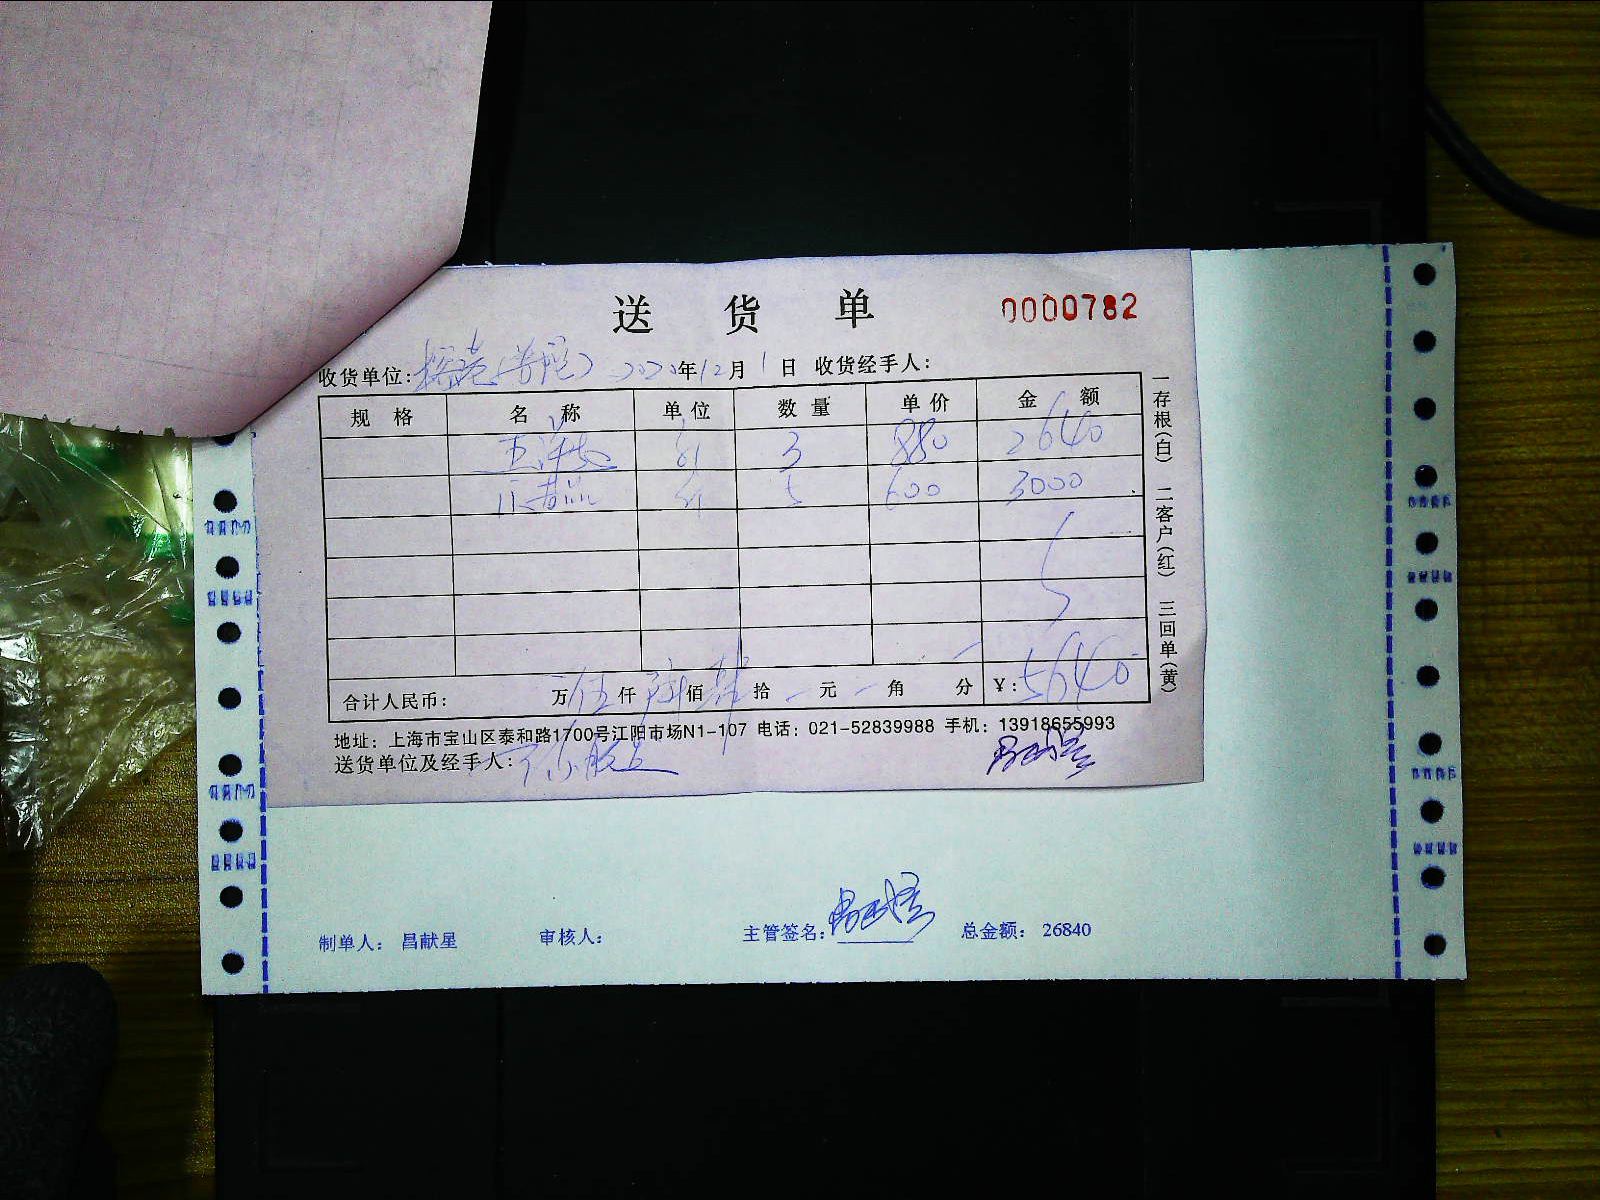 送 货 单 0000782
收货单位: 2020年12月1日 收货经手人:
规格 名称 单位 数量 单价 金额
3 880 2640
5 600 3000
合计人民币: 万伍仟陆佰肆拾 元 角 分 ¥:5640
地址:上海市宝山区泰和路1700号江阳市场N1-107 电话:021-52839988 手机:13918655993
送货单位及经手人:
一存根(白) 二客户(红) 三回单(黄)
制单人: 昌献星 审核人: 主管签名: 总金额: 26840